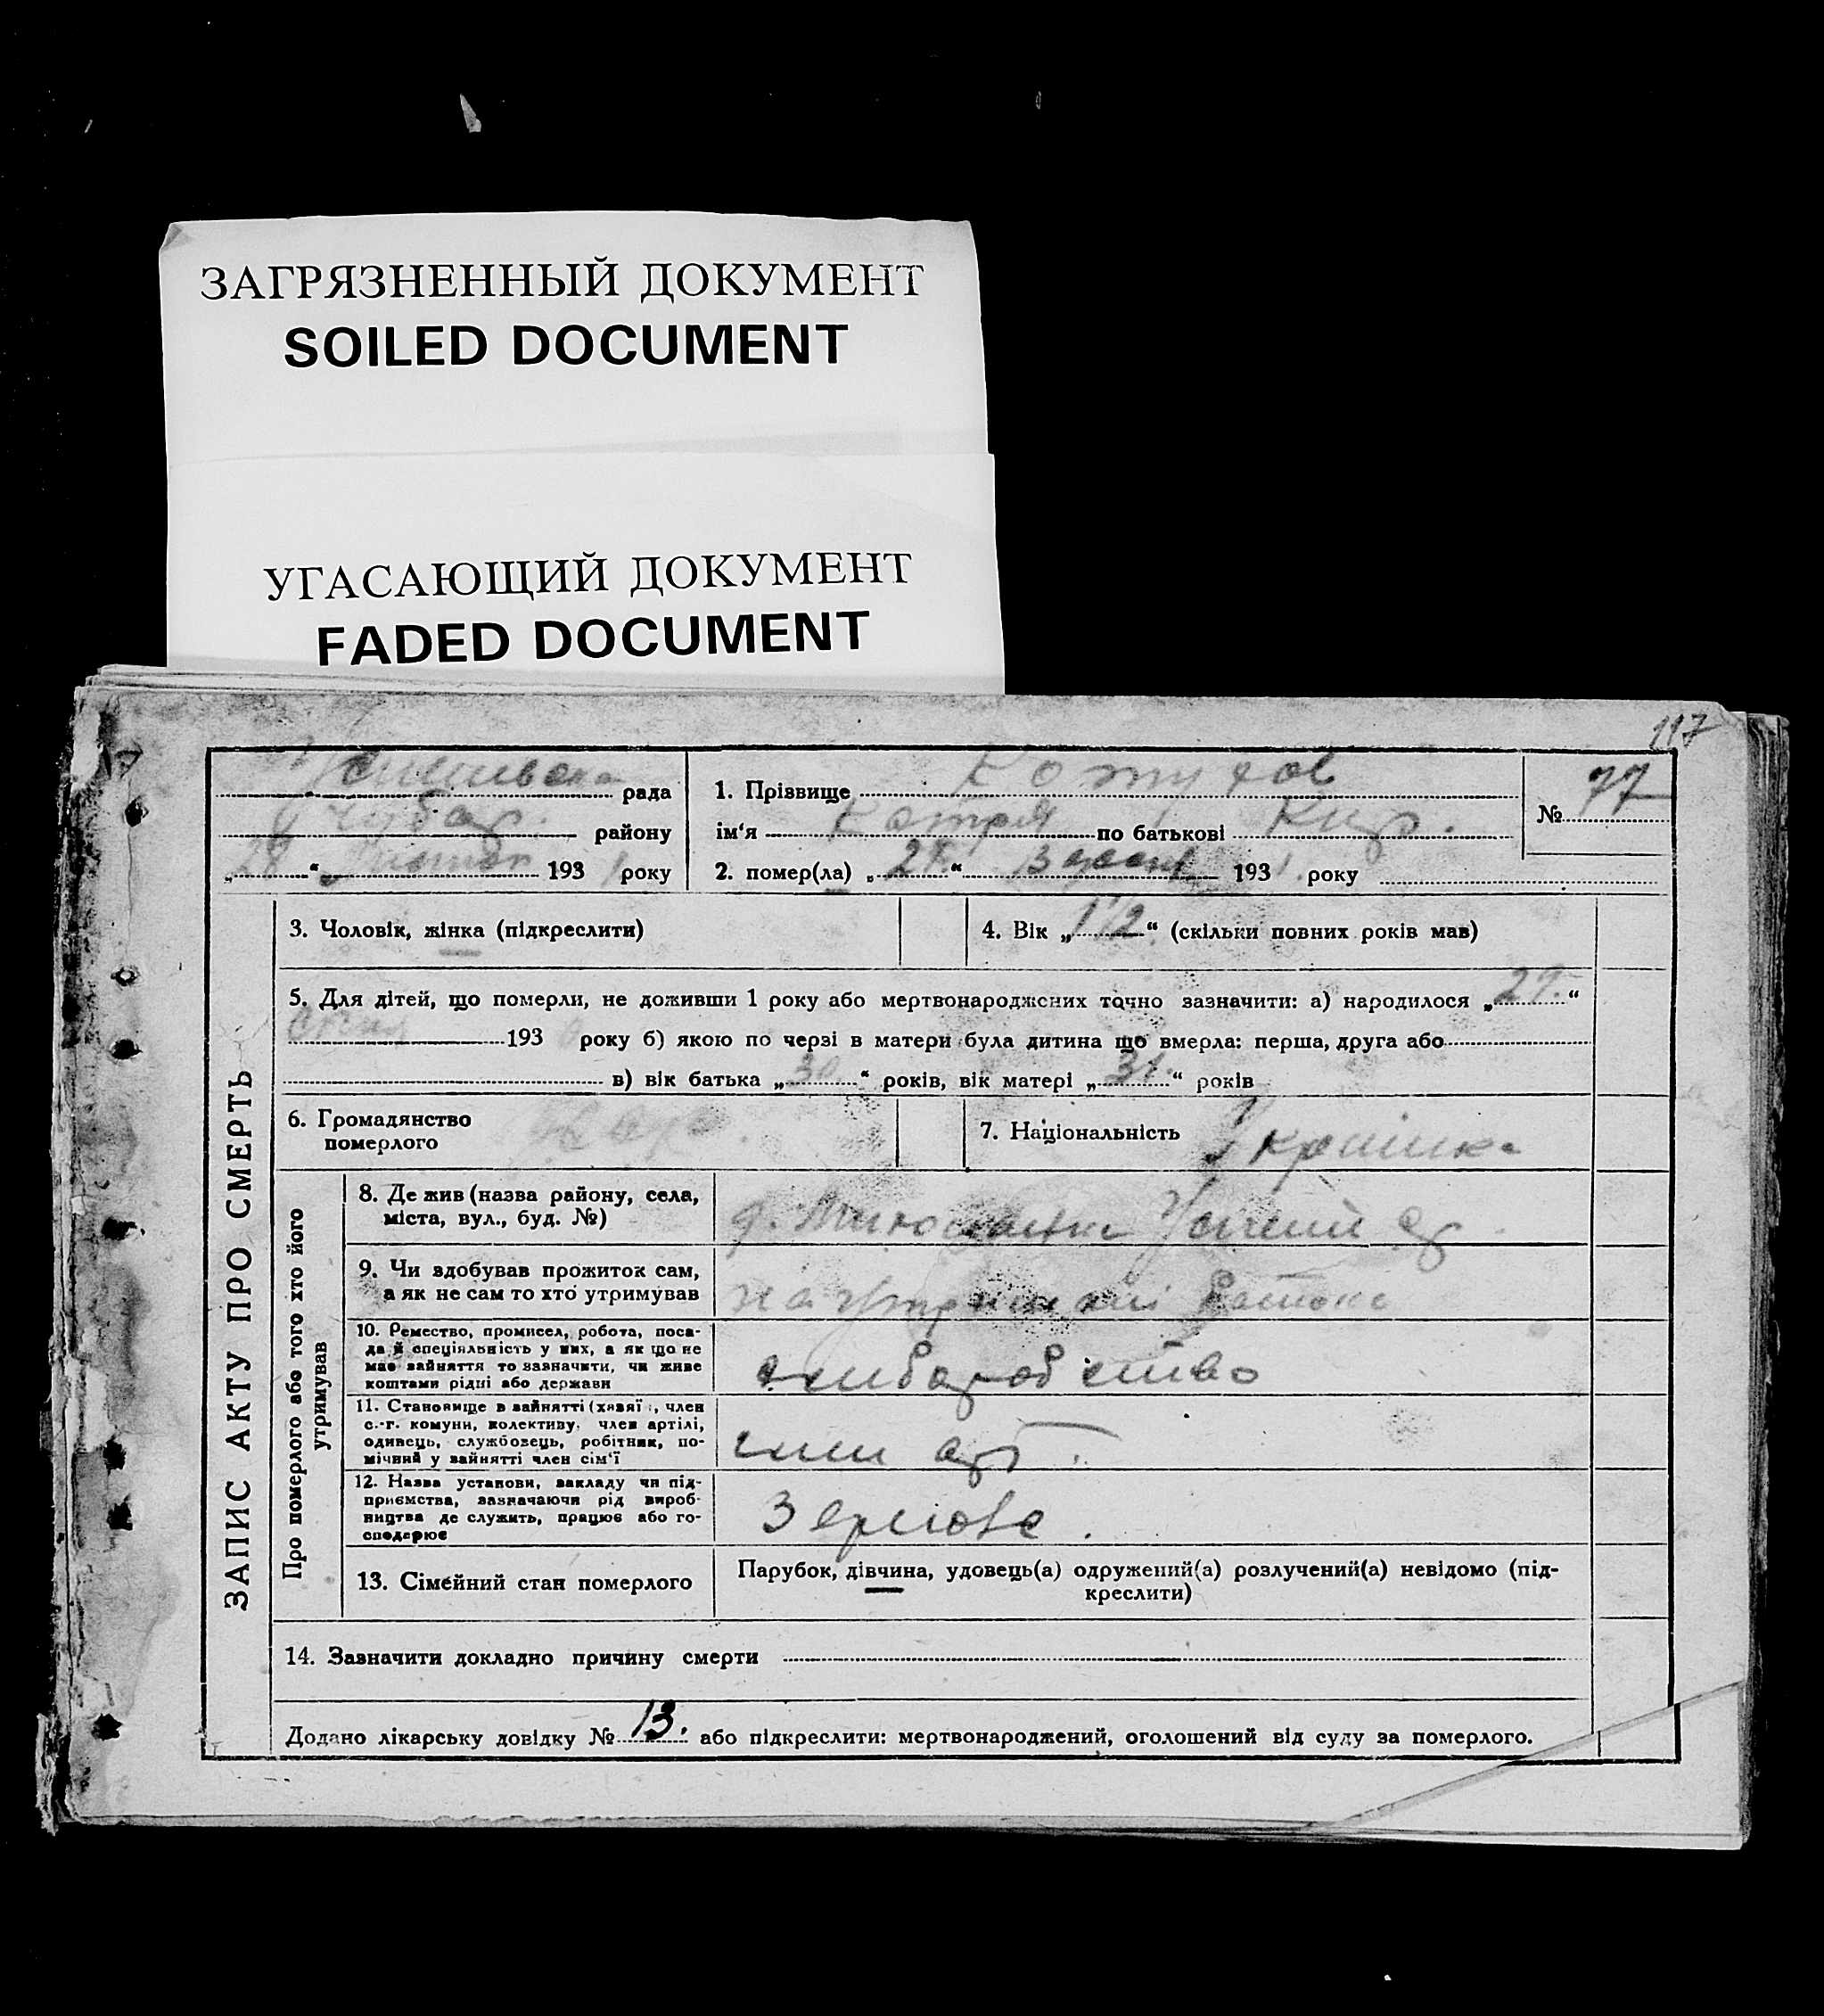 ЗАГРЯЗНЕННЫЙ ДОКУМЕНТ
SOILED DOCUMENT
УГАСАЮЩИЙ ДОКУМЕНТ
FADED DOCUMENT
117
рада
району
193 1 року
1. Прізвище
ім'я Котря по батькові Кир.
2. помер(ла) „ “ 193 1. року
№ 77
ЗАПИС АКТУ ПРО СМЕРТЬ
3. Чоловік, жінка (підкреслити)
4. Вік „1 1/2“ (скільки повних років мав)
5. Для дітей, що померли, не доживши 1 року або мертвонароджених точно зазначити: а) народилося „29.“
193 року б) якою по черзі в матери була дитина що вмерла: перша, друга або
в) вік батька „30“ років, вік матері „31.“ років
6. Громадянство
померлого
7. Національність Українка
Про померлого або того хто його
утримував
8. Де жив (назва району, села,
міста, вул., буд. №)
9. Чи здобував прожиток сам,
а як не сам то хто утримував
на утриманні батька
10. Ремество, промисел, робота, поса-
да й спеціяльність у них, а як що не
має зайняття то зазначити, чи живе
коштами рідні або держави
хлиборобство
11. Становище в зайнятті (хазяї , член
с.-г. комуни, колективу, член артілі,
одинець, службовець, робітник, по-
мічний у зайнятті член сім'ї
член арт.
12. Назва установи, закладу чи під-
приємства, зазначаючи рід вироб-
ництва де служить, працює або го-
сподарює
Зернове.
13. Сімейний стан померлого
Парубок, дівчина, удовець(а) одружений(а) розлучений(а) невідомо (під-
креслити)
14. Зазначити докладно причину смерти
Додано лікарську довідку № 13. або підкреслити: мертвонароджений, оголошений від суду за померлого.